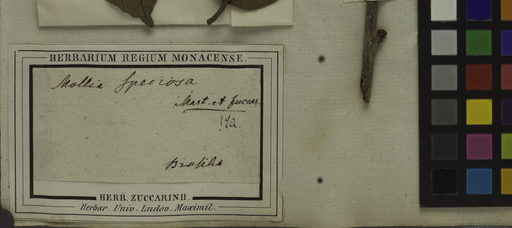 HERBARIUM REGIUM MONACENSE.
Mollia speciosa
Mart. et Zuccar.
Brasilia
HERB. ZUCCARINII.
Herbar. Univ. Ludov. Maximil.